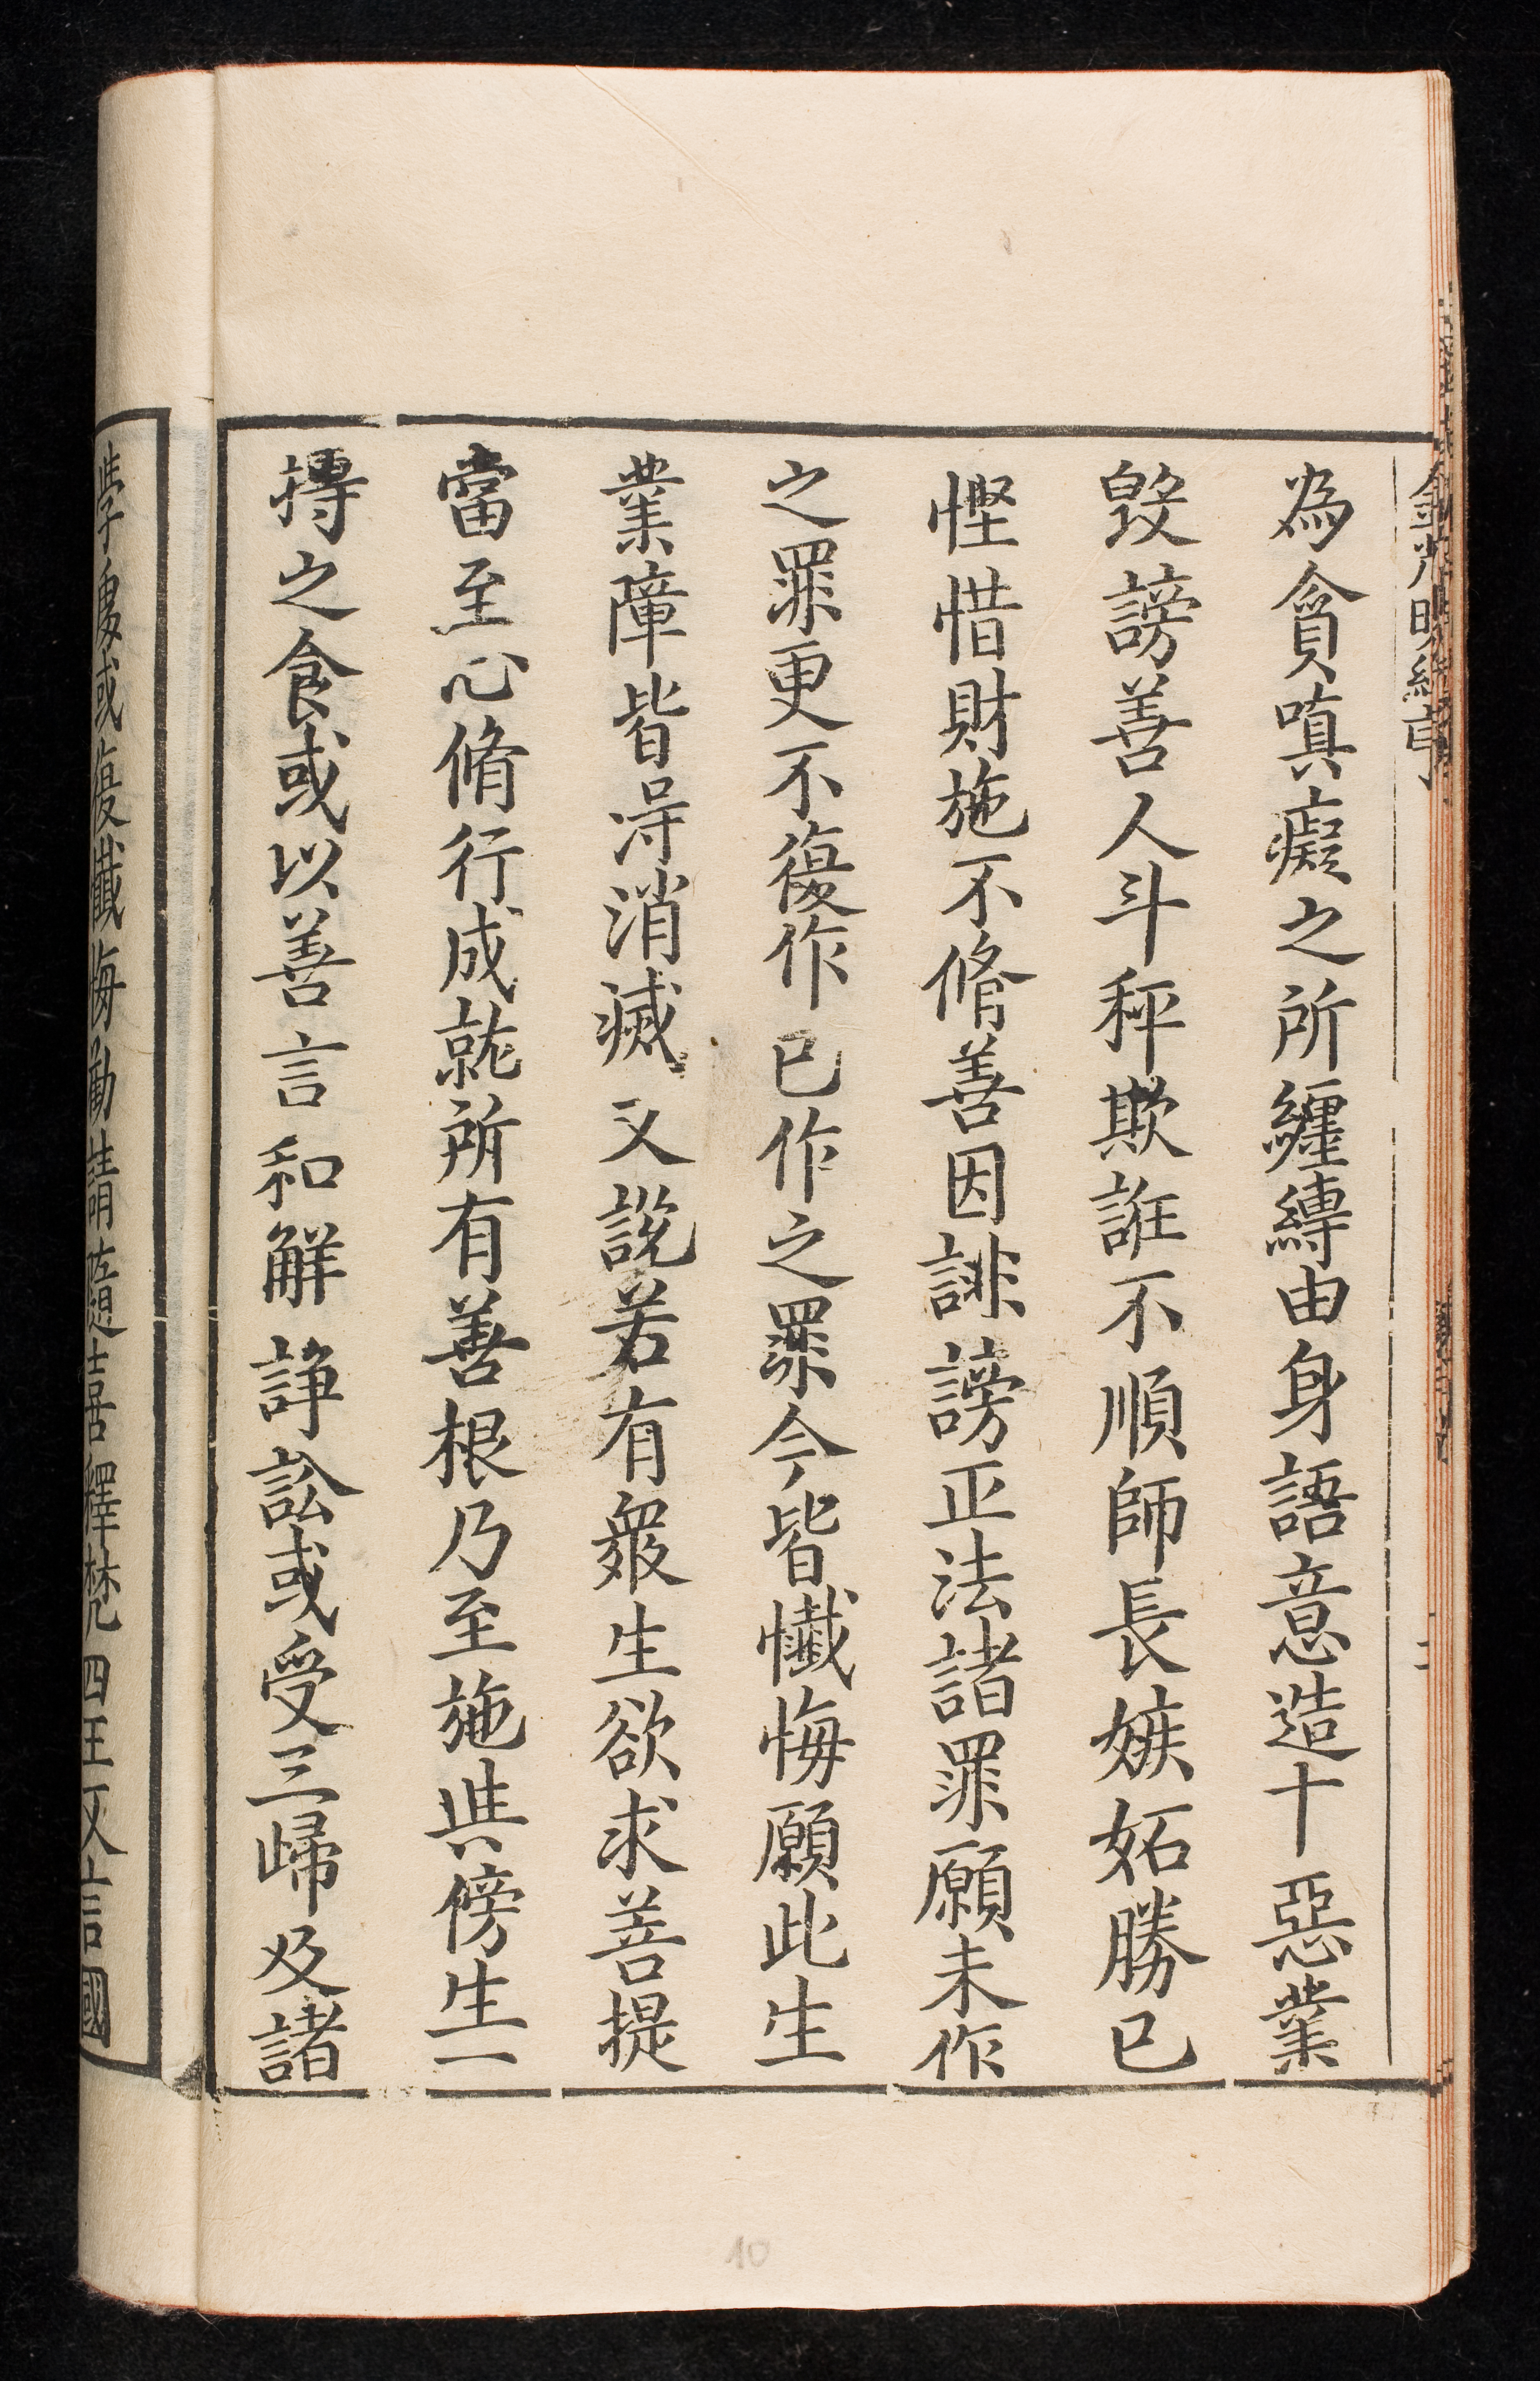 金光明經
為貪嗔癡之所纏縛由身語意造十惡業
毀謗善人斗秤欺誑不順師長嫉妬勝己
慳惜財施不脩善因誹謗正法諸罪願未作
之罪更不復作已作之罪今皆懺悔願此生
業障皆得消滅又說若有衆生欲求菩提
當至心脩行成就所有善根乃至施與傍生一
摶之食或以善言和解諍訟或受三歸及諸
學處或復懺悔勸請隨喜釋梵四王又言國
10